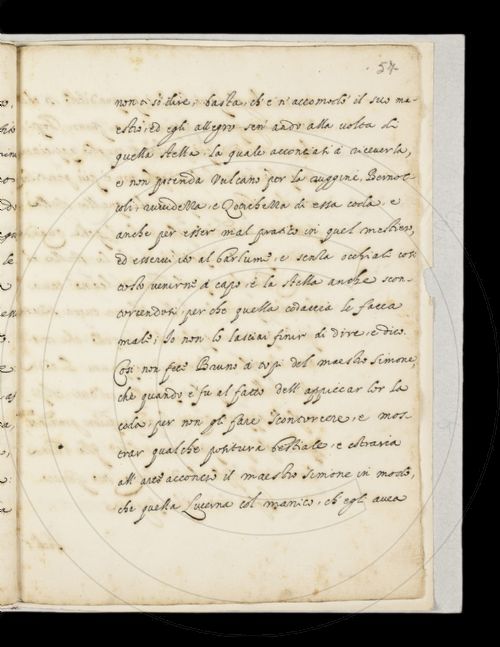 57
non ti sò dire, basta, ch'e n'accomodò il suo ma-
estro, ed egli allegro sen'andò alla volta di
quella stella. la quale acconciati à riceverla,
e non potendo Vulcano per la ruggine,
e di essa coda e
anche per esser mal pratico in quel mestiero,
ed esservi ito al barlume, e senza occhiali
venirne à capo, e la stella anche scon-
torcendosi, perche quella codaccia le facea
male; Io non lo lasciai finir di dire, e dico.
Così non fece Bruno à copi del maestro Simone,
che quando e fù al fatto dell'appiccar lor la
coda, per non gli fare scontorcere, e mos-
trar qualche positura bestiale, e
all'arte acconciò il maestro Simone in modo,
che quella Lucerna col manico, ch'egli avea